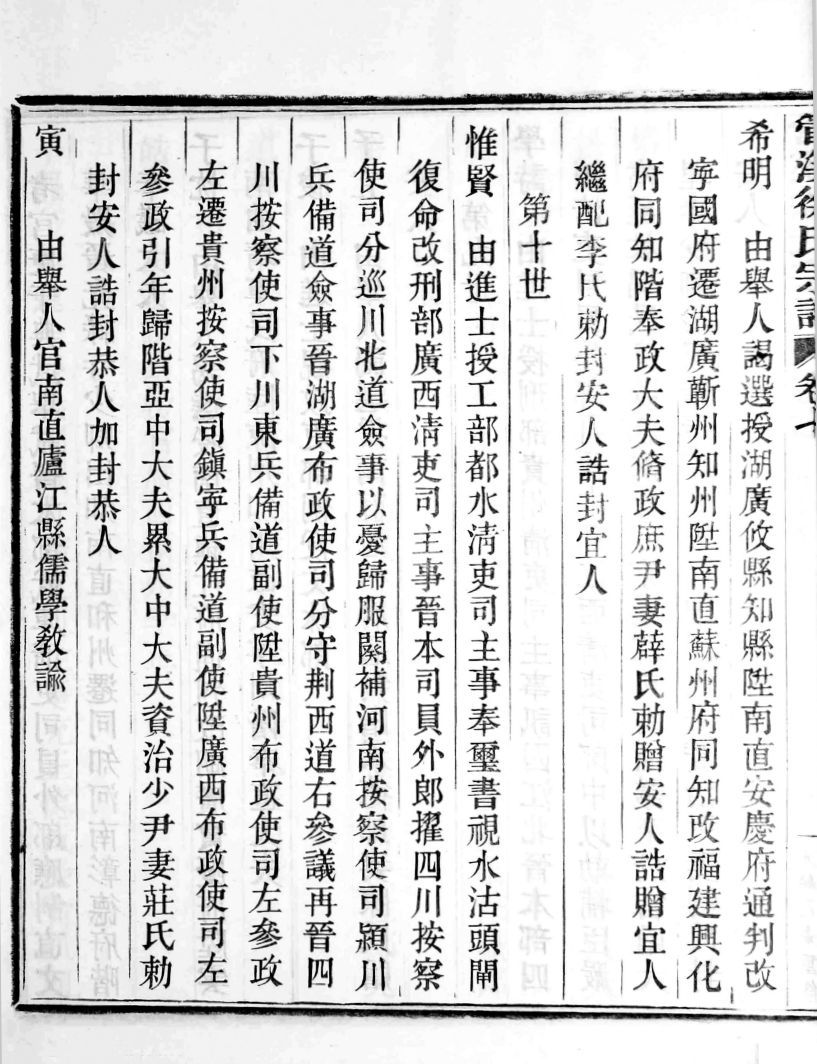 徐氏宗譜 卷十
希明　由舉人謁選授湖廣攸縣知縣陞南直安慶府通判改
寧國府遷湖廣蘄州知州陞南直蘇州府同知改福建興化
府同知階奉政大夫脩政庶尹妻薛氏勅贈安人誥贈宜人
繼配李氏勅封安人誥封宜人
第十世
惟賢　由進士授工部都水清吏司主事奉璽書視水沽頭閘
復命改刑部廣西清吏司主事晉本司員外郎擢四川按察
使司分巡川北道僉事以憂歸服闋補河南按察使司潁川
兵備道僉事晉湖廣布政使司分守荆西道右參議再晉四
川按察使司下川東兵備道副使陞貴州布政使司左參政
左遷貴州按察使司鎮寧兵備道副使陞廣西布政使司左
參政引年歸階亞中大夫累大中大夫資治少尹妻莊氏勅
封安人誥封恭人加封恭人
寅　由舉人官南直廬江縣儒學教諭